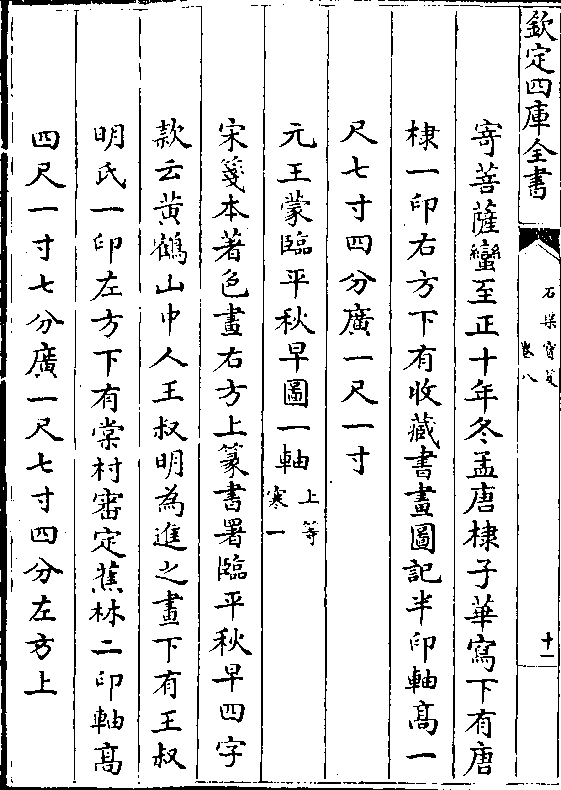 欽定四庫全書
石渠寶笈
卷八
十一
寄菩薩蠻至正十年冬孟唐棣子華寫下有唐
棣一印右方下有收藏書畫圖記半印軸髙一
尺七寸四分廣一尺一寸
元王蒙臨平秋早圖一軸
上等
寒一
宋箋本著色畫右方上篆書署臨平秋早四字
款云黄鶴山中人王叔明為進之畫下有王叔
明氏一印左方下有棠村審定蕉林二印軸髙
四尺一寸七分廣一尺七寸四分左方上